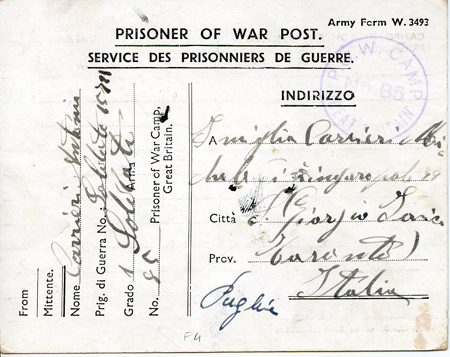 Army Form W. 3493
PRISONER OF WAR POST.
SERVICE DES PRISONNIERS DE GUERRE.
P.W. CAMP
No. 85
GREAT BRITAIN
INDIRIZZO
A Famiglia Carrieri
Città S. Giorgio
Prov. Taranto
Italia
Puglie
From
Mittente.
Nome Carrieri
Prig. di Guerra No.: Soldato
Grado Soldato Arma
No. 85 Prisoner of War Camp,
Great Britain.
F4